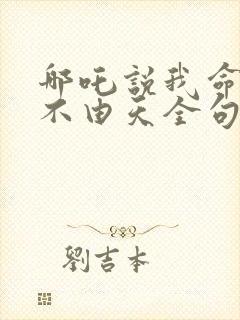 哪吒説我命
不由天全句
劉吉本